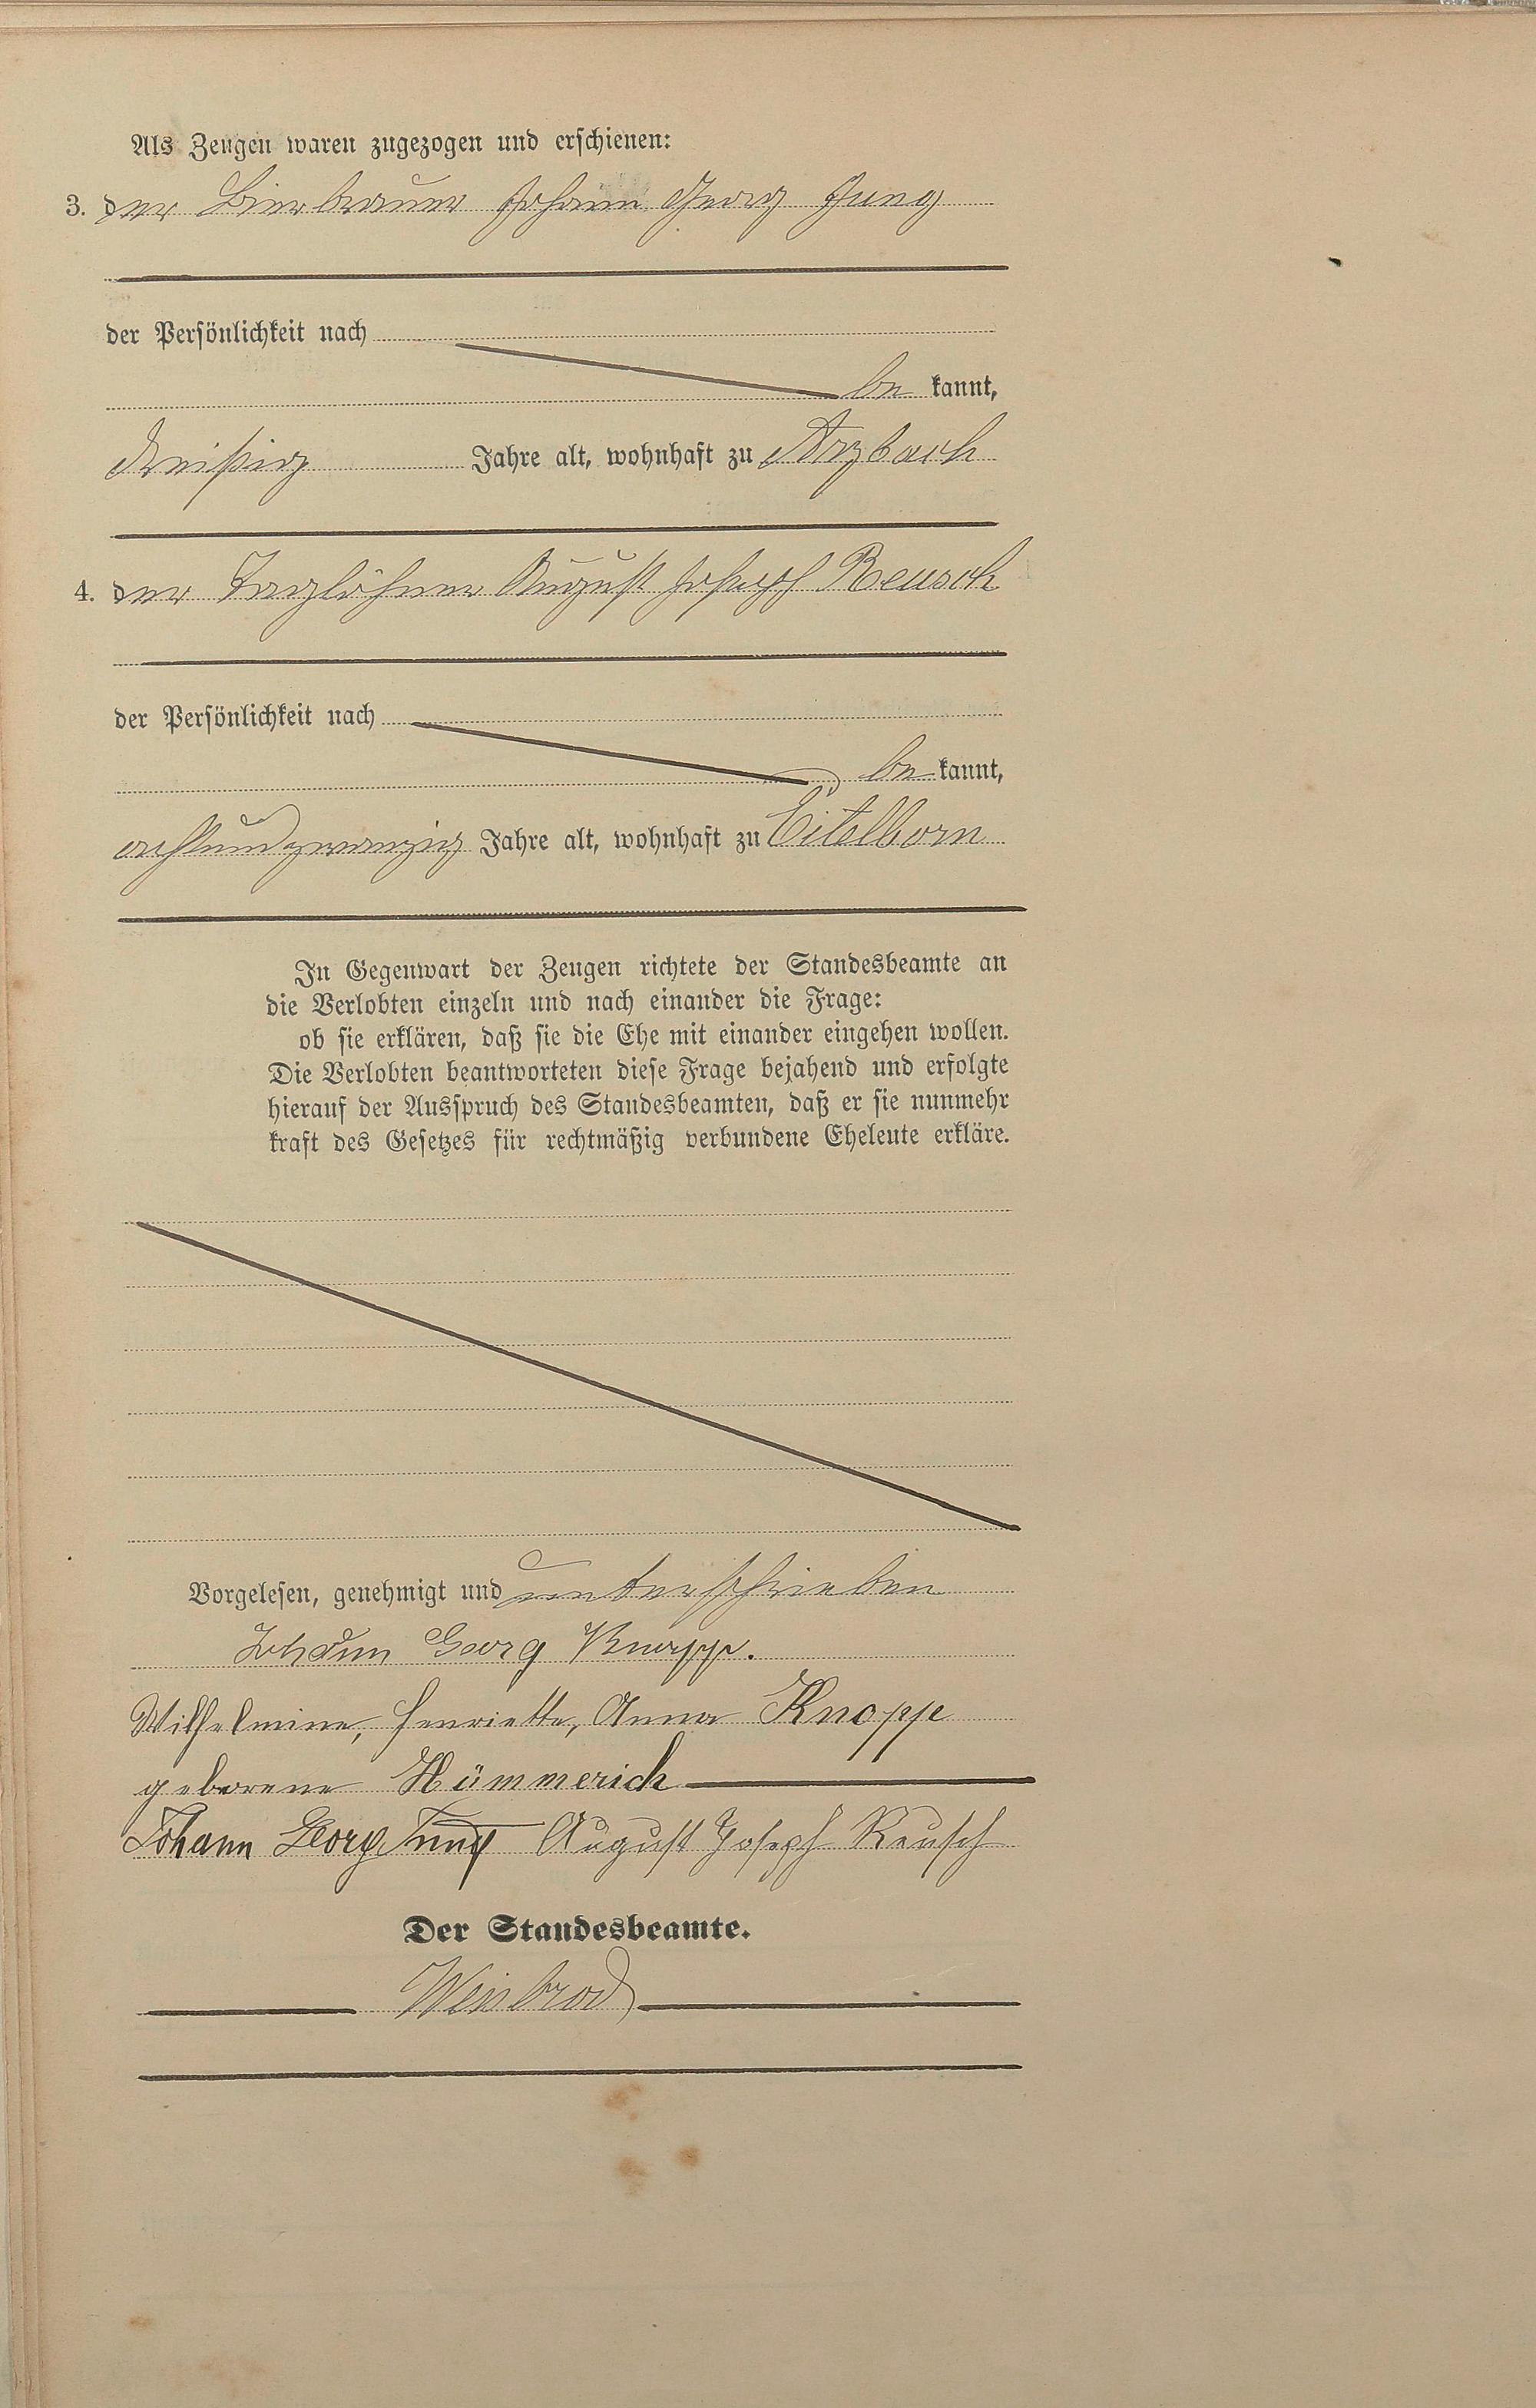 Als Zeugen waren zugezogen und erschienen:
3. der Bierbrauer Johann Georg Jung
der Persönlichkeit nach
be kannt,
dreißig Jahre alt, wohnhaft zu Arzbach
4. der Taglöhner August Joseph Reusch
der Persönlichkeit nach
be kannt,
achtundzwanzig Jahre alt, wohnhaft zu Eitelborn
In Gegenwart der Zeugen richtete der Standesbeamte an
die Verlobten einzeln und nach einander die Frage:
ob sie erklären, daß sie die Ehe mit einander eingehen wollen.
Die Verlobten beantworteten diese Frage bejahend und erfolgte
hierauf der Ausspruch des Standesbeamten, daß er sie nunmehr
kraft des Gesetzes für rechtmäßig verbundene Eheleute erkläre.
Vorgelesen, genehmigt und unterschrieben
Johann Georg Knopp.
Wilhelmine, Henriette, Anna Knopp
geborene Hümmerich
Johann Georg Jung August Joseph Reusch
Der Standesbeamte.
Weisbrod